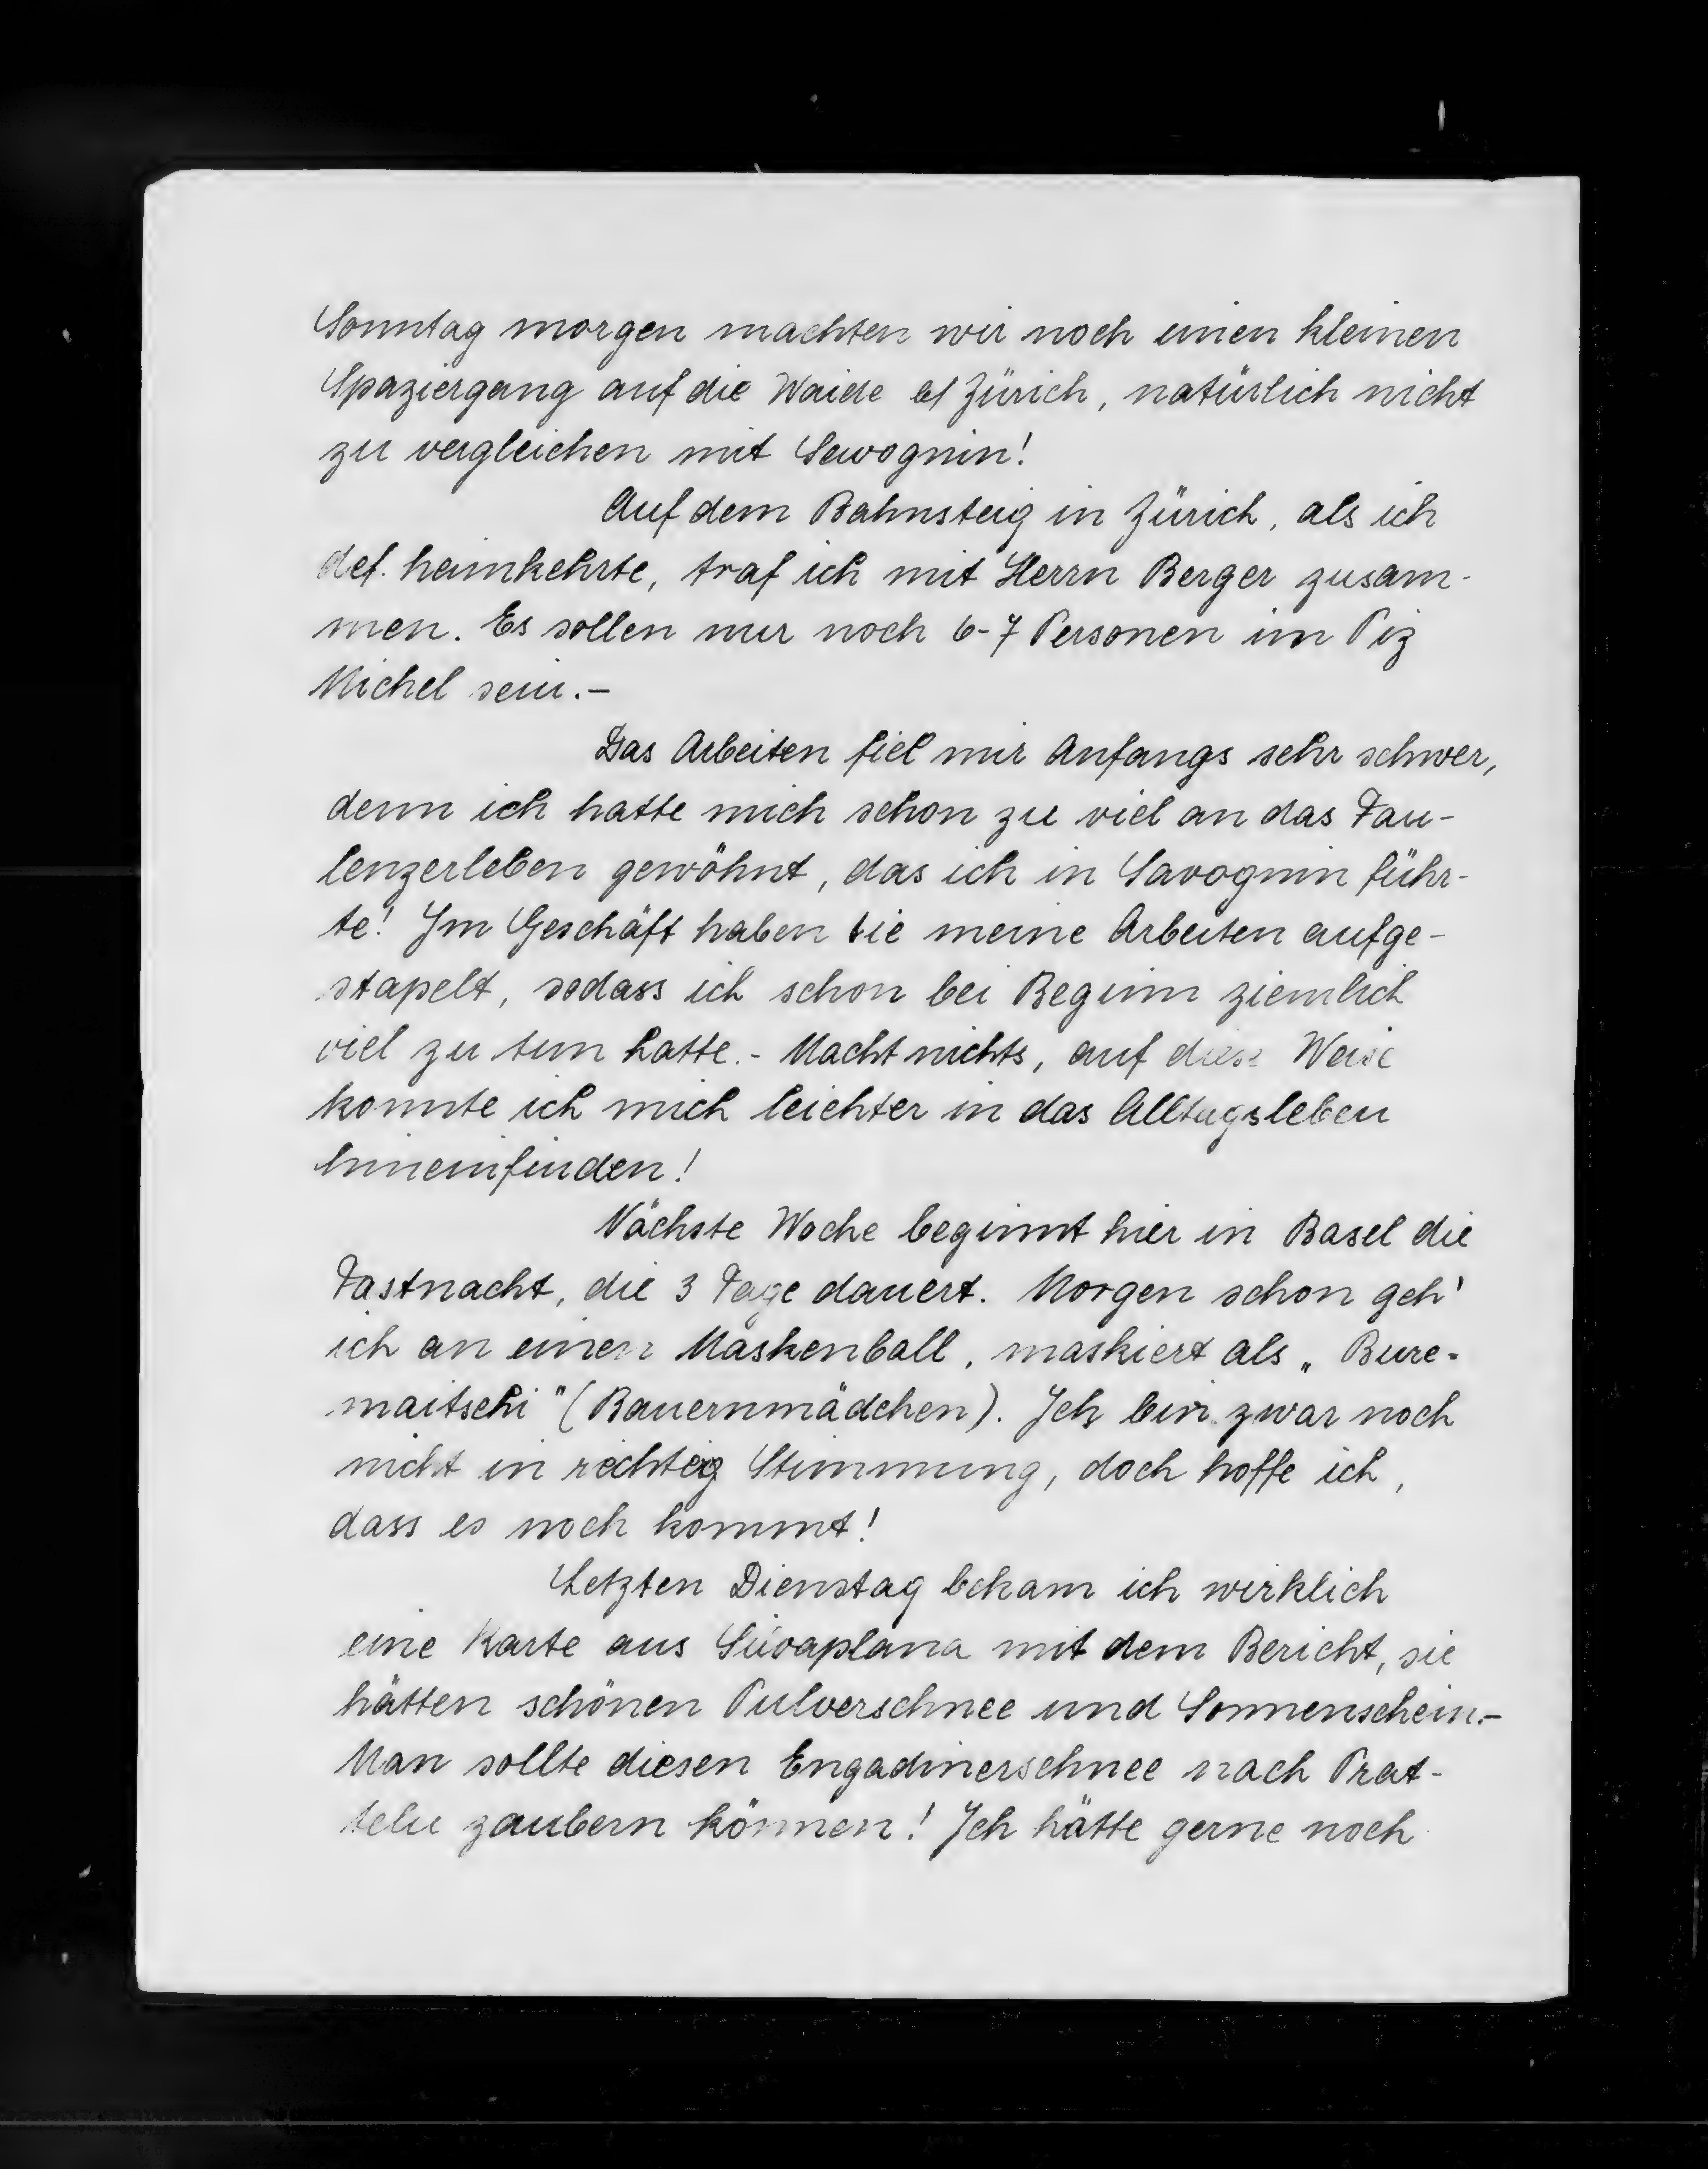 Sonntag morgen machten wir noch einen kleinen
Spaziergang auf die Waide b/ Zürich, natürlich nicht
zu vergleichen mit Savognin!
Auf dem Bahnsteig in Zürich, als ich
def. heimkehrte, traf ich mit Herrn Berger zusam-
men. Es sollen nur noch 6-7 Personen im Piz
Michel sein.-
Das Arbeiten fiel mir Anfangs sehr schwer,
denn ich hatte mich schon zu viel an das Fau-
lenzerleben gewöhnt, das ich in Savognin führ-
te! Im Geschäft haben sie meine Arbeiten aufge-
stapelt, sodass ich schon bei Beginn ziemlich
viel zu tun hatte.- Macht nichts, auf diese Weise
konnte ich mich leichter in das Alltagsleben
hineinfinden!
Nächste Woche beginnt hier in Basel die
Fastnacht, die 3 Tage dauert. Morgen schon geh'
ich an einen Maskenball, maskiert als „Bure-
maitschi" (Bauernmädchen). Ich bin zwar noch
nicht in richtig Stimmung, doch hoffe ich,
dass es noch kommt!
Letzten Dienstag bekam ich wirklich
eine Karte aus Silvaplana mit dem Bericht, sie
hätten schönen Pulverschnee und Sonnenschein.-
Man sollte diesen Engadinerschnee nach Prat-
teln zaubern können! Ich hätte gerne noch